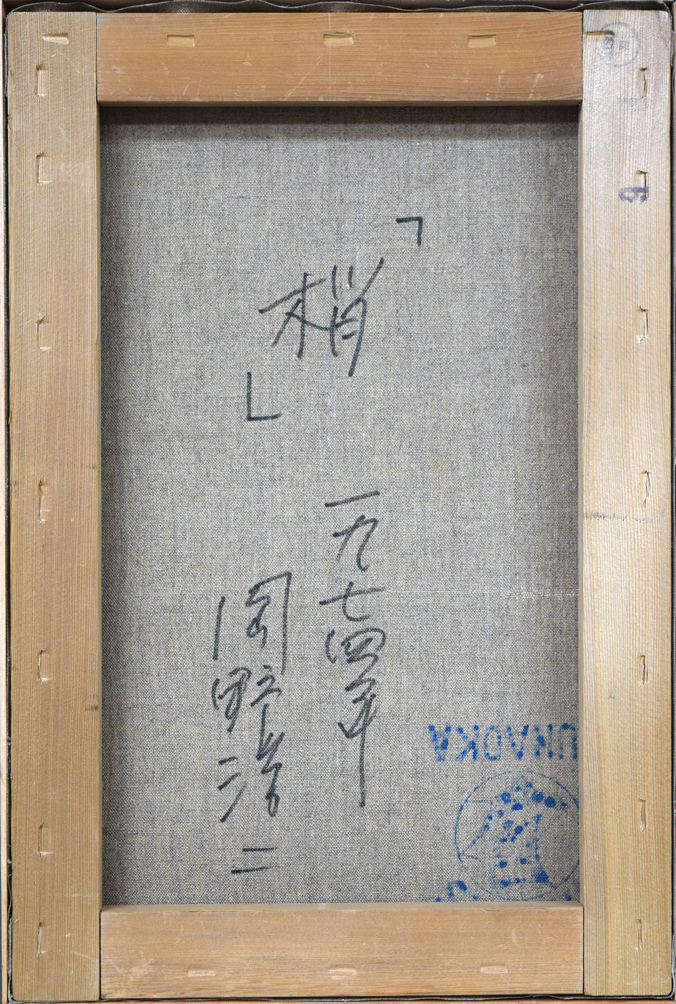 「梢」
一九七四年
岡野浩二